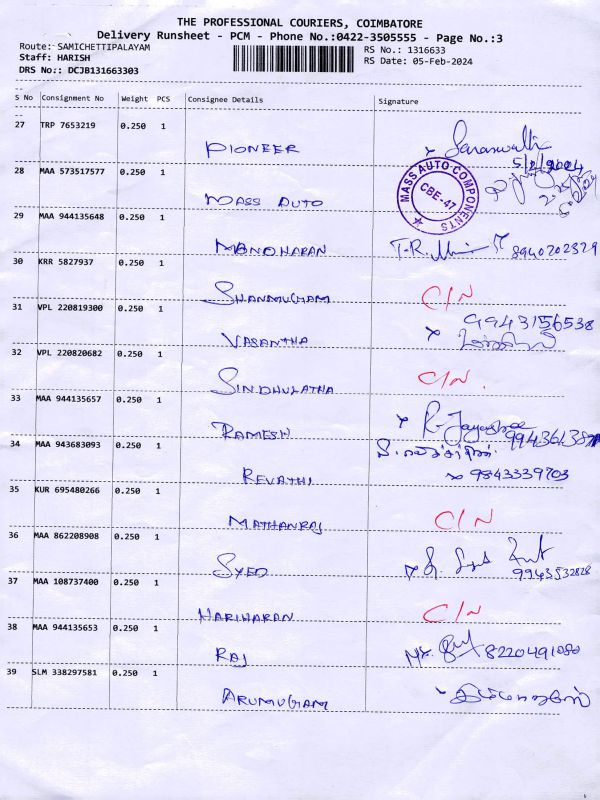 THE PROFESSIONAL COURIERS, COIMBATORE
Delivery Runsheet - PCM - Phone No.:0422-3505555 - Page No.:3
Route: SAMICHETTIPALAYAM
RS No.: 1316633
Staff: HARISH
RS Date: 05-Feb-2024
DRS No.: DCJB131663303
S No Consignment No Weight PCS Consignee Details Signature
27 TRP 7653219 0.250 1 PIONEER Saraswathi
5/2/2024
28 MAA 573517577 0.250 1 MASS AUTO
MASS AUTO COMPONENTS
CBE-47
29 MAA 944135648 0.250 1 MANOHARAN T.R. 8940202329
30 KRR 5827937 0.250 1 SHANMUGHAM C/N
31 VPL 220819300 0.250 1 VASANTHA 9943156538
32 VPL 220820682 0.250 1 SINDHULATHA C/N.
33 MAA 944135657 0.250 1 RAMESH R. Jayashree
34 MAA 943683093 0.250 1 REVATHI 9843339703
35 KUR 695480266 0.250 1 MATHANRAJ C/N
36 MAA 862208908 0.250 1 SYED 9943532828
37 MAA 108737400 0.250 1 HARIHARAN C/N
38 MAA 944135653 0.250 1 RAJ 8220491080
39 SLM 338297581 0.250 1 ARUMUGAM